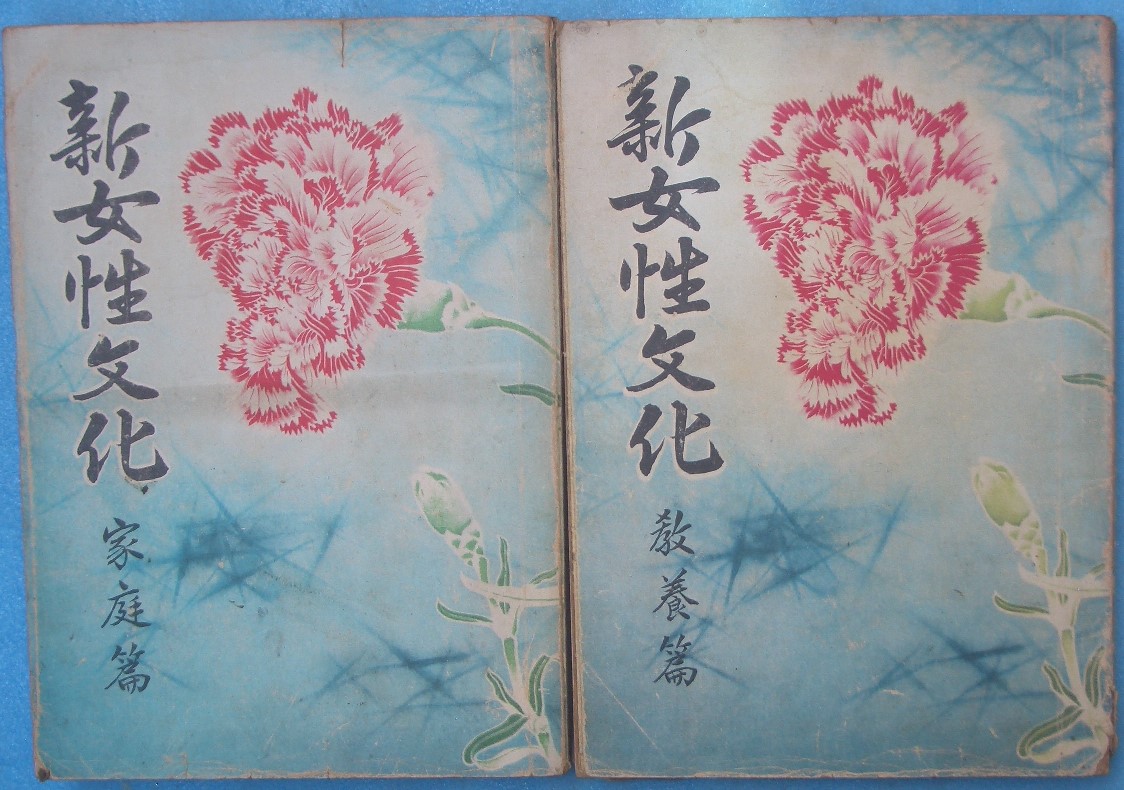 新女性文化
家庭篇
新女性文化
教養篇